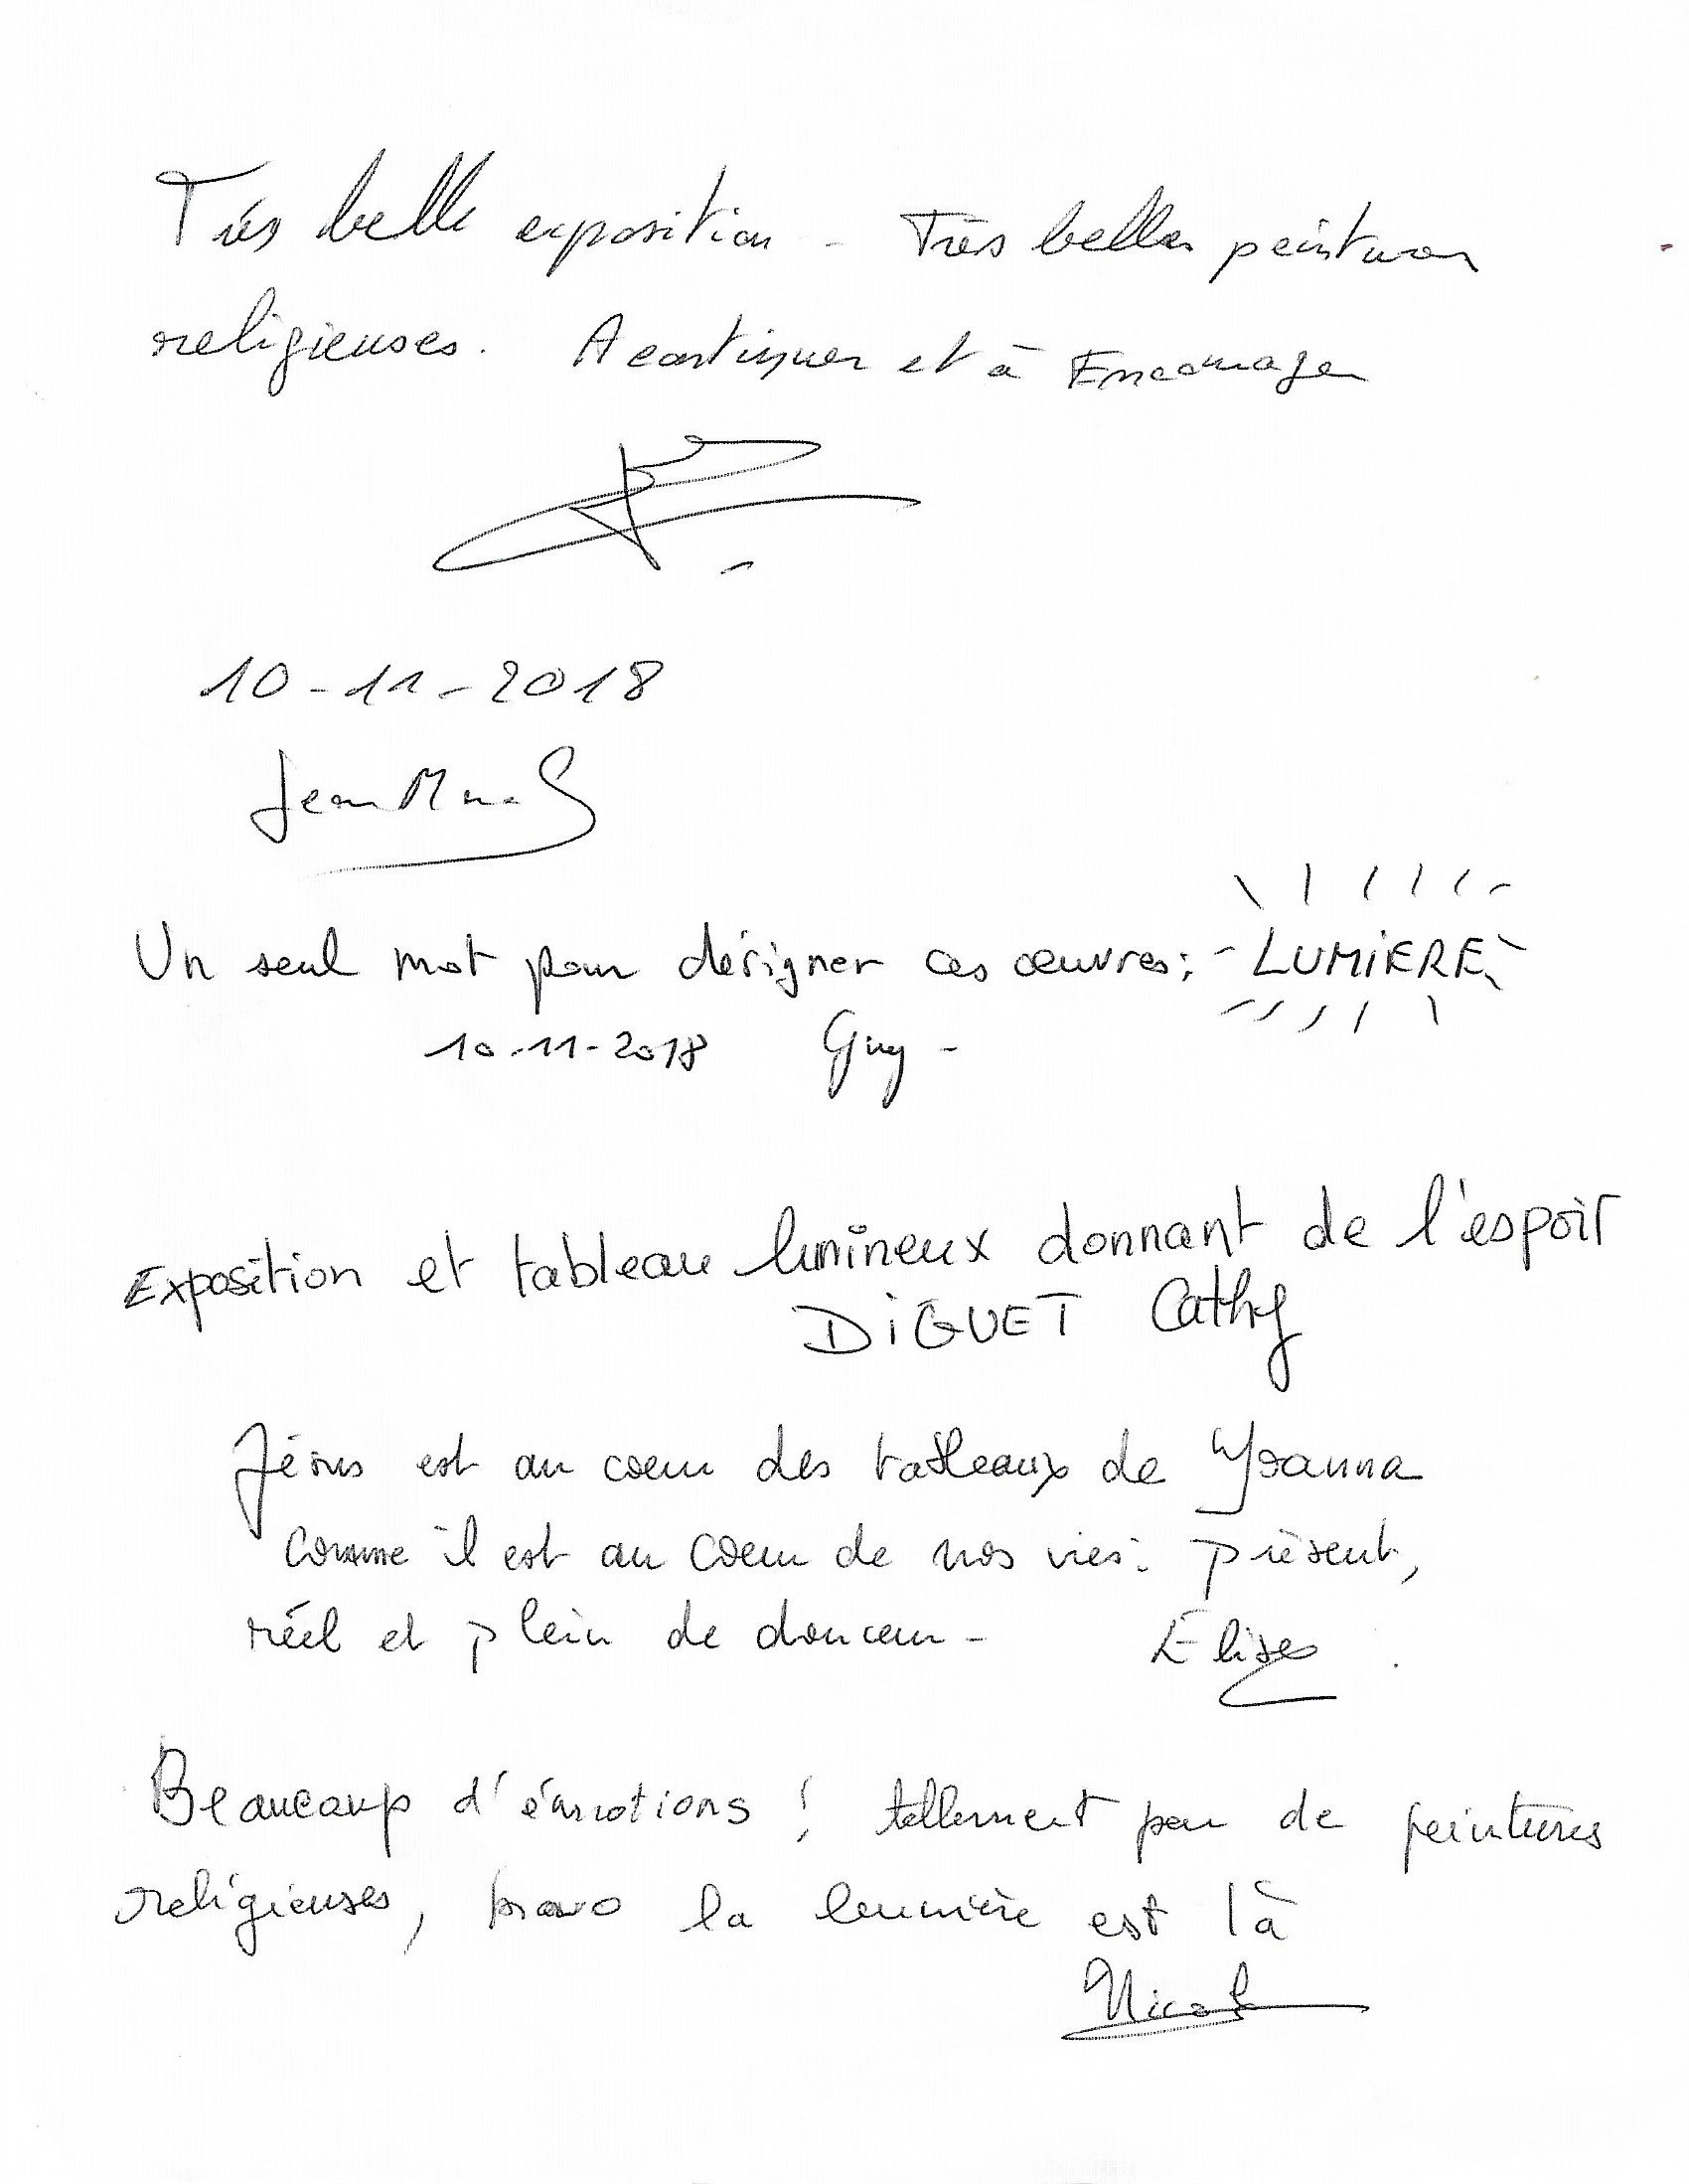 Très belle exposition - Très belles peintures
religieuses. A continuer et à Encourager
10-11-2018
Jean
Un seul mot pour désigner ces œuvres: LUMiERE
10-11-2018 Guy -
Exposition et tableau lumineux donnant de l'espoir
DiGUET Cathy
Jésus est au cœur des tableaux de Yoanna
comme il est au cœur de nos vies: présent,
réel et plein de douceur - Elise
Beaucoup d'émotions ! tellement peu de peintures
religieuses, bravo la lumière est là
Nicole